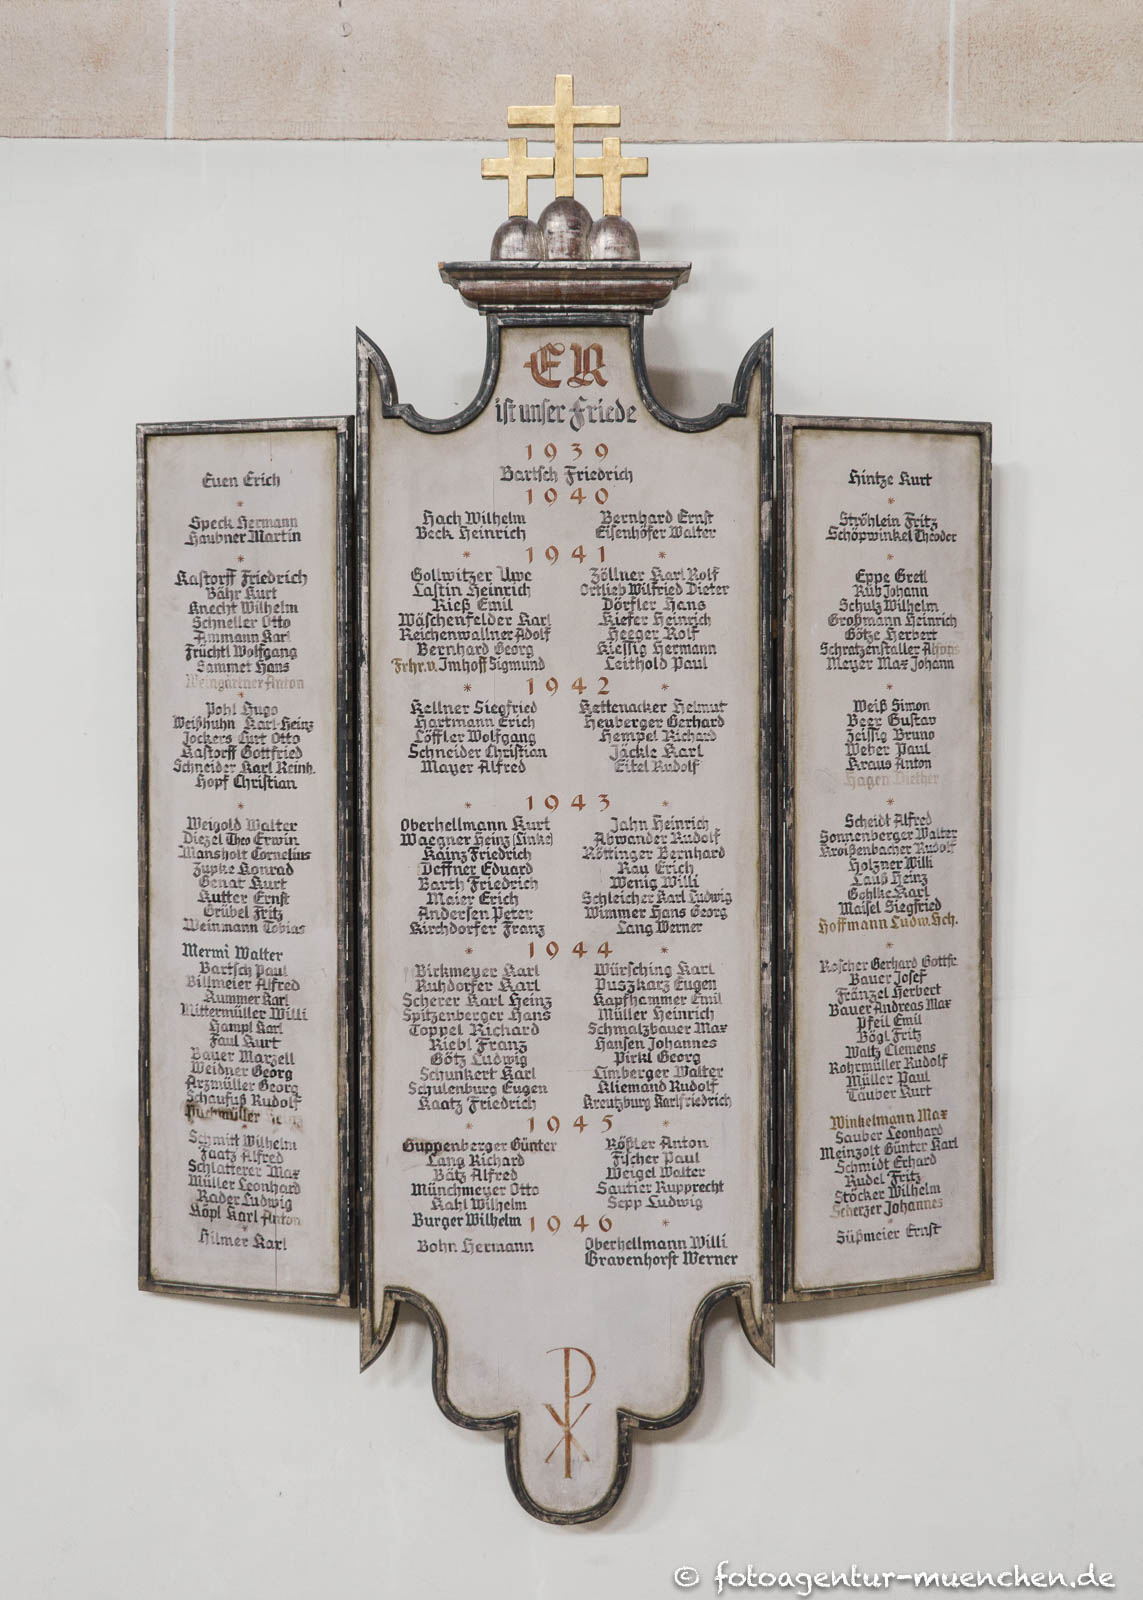 ER
ist unser Friede
1939
Bartsch Friedrich
1940
Hach Wilhelm
Beck Heinrich
Bernhard Ernst
Eisenhöfer Walter
1941
Gollwitzer Uwe
Lastin Heinrich
Rieß Emil
Wäschenfelder Karl
Reichenwallner Adolf
Bernhard Georg
Frhr. v. Imhoff Sigmund
Zöllner Karl Rolf
Ortlieb Wilfried Dieter
Dörfler Hans
Kiefer Heinrich
Heeger Rolf
Kiessig Hermann
Leithold Paul
1942
Kellner Siegfried
Hartmann Erich
Löffler Wolfgang
Schneider Christian
Mayer Alfred
Kettenacker Helmut
Heuberger Gerhard
Hempel Richard
Jäckle Karl
Eitel Rudolf
1943
Oberhellmann Kurt
Waegner Heinz (Linke)
Kainz Friedrich
Deffner Eduard
Barth Friedrich
Maier Erich
Andersen Peter
Kirchdorfer Franz
Jahn Heinrich
Abwander Rudolf
Röttinger Bernhard
Rau Erich
Wenig Willi
Schleicher Karl Ludwig
Wimmer Hans Georg
Lang Werner
1944
Birkmeyer Karl
Ruhdorfer Karl
Scherer Karl Heinz
Spitzenberger Hans
Toppel Richard
Riebl Franz
Götz Ludwig
Schunkert Karl
Schulenburg Eugen
Kaatz Friedrich
Würsching Karl
Puszkarz Eugen
Kapfhammer Emil
Müller Heinrich
Schmalzbauer Max
Hansen Johannes
Pirkl Georg
Limberger Walter
Kliemand Rudolf
Kreutzburg Karlfriedrich
1945
Guppenberger Günter
Lang Richard
Bätz Alfred
Münchmeyer Otto
Kahl Wilhelm
Burger Wilhelm
Rößler Anton
Fischer Paul
Weigel Walter
Sautier Rupprecht
Sepp Ludwig
1946
Bohn Hermann
Oberhellmann Willi
Gravenhorst Werner
Euen Erich
Speck Hermann
Haubner Martin
Kastorff Friedrich
Bähr Kurt
Knecht Wilhelm
Schneller Otto
Ammann Karl
Früchtl Wolfgang
Sammet Hans
Weingärtner Anton
Pohl Hugo
Weißhuhn Karl-Heinz
Jockers Curt Otto
Kastorff Gottfried
Schneider Karl Reinh.
Hopf Christian
Weigold Walter
Diezel Theo Erwin
Mansholt Cornelius
Zupke Konrad
Genat Kurt
Kutter Ernst
Grübel Fritz
Weinmann Tobias
Mermi Walter
Bartsch Paul
Billmeier Alfred
Kummer Karl
Mittermüller Willi
Hampl Karl
Faul Kurt
Bauer Marzell
Weidner Georg
Arzmüller Georg
Schaufuß Rudolf
Schmitt Wilhelm
Zaatz Alfred
Schlatterer Max
Müller Leonhard
Rader Ludwig
Köpl Karl Anton
Hilmer Karl
Hintze Kurt
Ströhlein Fritz
Schöpwinkel Theodor
Eppe Gretl
Rüb Johann
Schulz Wilhelm
Großmann Heinrich
Götze Herbert
Schratzenstaller Alfons
Meyer Max Johann
Weiß Simon
Beer Gustav
Zeissig Bruno
Weber Paul
Kraus Anton
Hagen Diether
Scheidt Alfred
Sonnenberger Walter
Kroißenbacher Rudolf
Holzner Willi
Lauß Heinz
Gohlke Karl
Maisel Siegfried
Hoffmann Ludw. Hch.
Roscher Gerhard Gottfr.
Bauer Josef
Fränzel Herbert
Bauer Andreas Max
Pfeil Emil
Bögl Fritz
Waltz Clemens
Rohrmüller Rudolf
Müller Paul
Tauber Kurt
Winkelmann Max
Sauber Leonhard
Meinzolt Günter Karl
Schmidt Erhard
Rudel Fritz
Stöcker Wilhelm
Scherzer Johannes
Süßmeier Ernst
© fotoagentur-muenchen.de